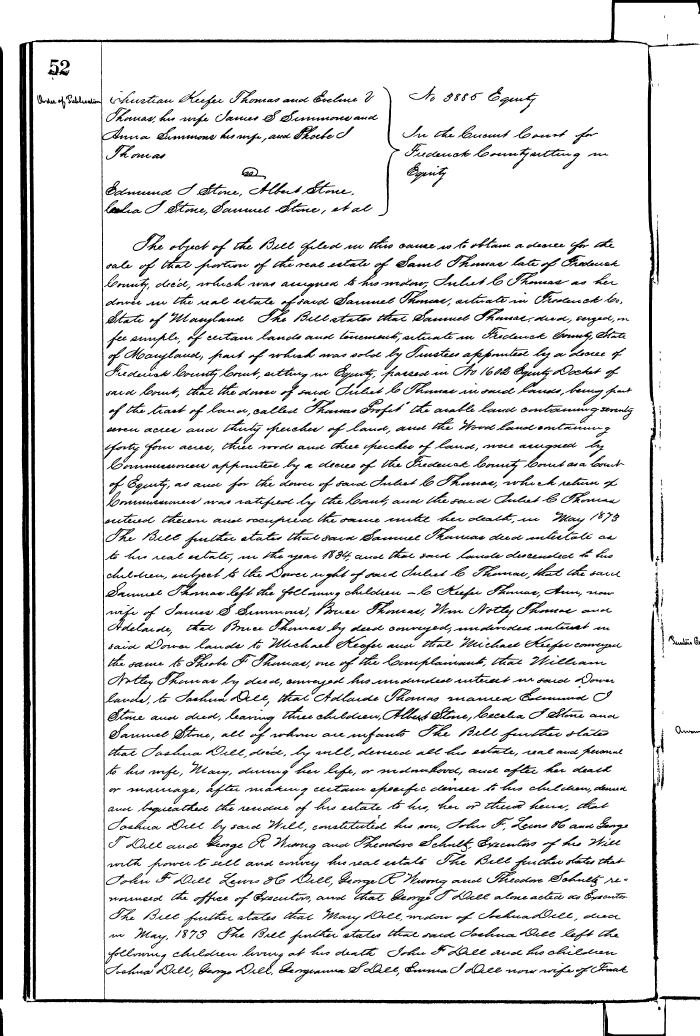 52
Order of Publication
Christian Keefer Thomas and Eveline V
Thomas, his wife James S Simmons and
Anna Simmons his wife, and Phoebe F
Thomas
vs
Edmund I Stone, Albert Stone,
Cecelia I Stone, Samuel Stone, et al
No 3885 Equity
In the Circuit Court for
Frederick County sitting in
Equity
The object of the Bill filed in this cause is to obtain a decree for the
sale of that portion of the real estate of Saml Thomas late of Frederick
County, dec'd, which was assigned to his widow, Juliet C Thomas as her
dower in the real estate of said Samuel Thomas, situate in Frederick Co,
State of Maryland The Bill states that Samuel Thomas, died, seized, in
fee simple, of certain lands and tenement, situate in Frederick County, State
of Maryland, part of which was sold by Trustees appointed by a decree of
Frederick County Court, sitting in Equity, passed in No 1608 Equity Docket of
said Court, that the dower of said Juliet C Thomas in said lands, being part
of the tract of land, called "Thomas Profit" the arable land containing seventy
seven acres and thirty perches of land, and the Wood land containing
forty four acres, three roods and three perches of land, were assigned by
Commissioners appointed by a decree of the Frederick County Court as a Court
of Equity, as and for the dower of said Juliet C Thomas, which return of
Commissioners was ratified by the Court, and the said Juliet C Thomas
entered therein and occupied the same until her death, in May 1873
The Bill further states that said Samuel Thomas died intestate as
to his real estate, in the year 1834, and that said lands descended to his
children, subject to the Dower right of said Juliet C Thomas, that the said
Samuel Thomas left the following children - C Keefer Thomas, Ann, now
wife of James S Simmons, Bruce Thomas, Wm Notley Thomas and
Adelaide, that Bruce Thomas by deed conveyed, undivided interest in
said Dower lands to Michael Keefer and that Michael Keefer conveyed
the same to Phoebe F Thomas, one of the Complainants, that William
Notley Thomas by deed, conveyed his undivided interest in said Dower
lands, to Joshua Dill, that Adelaide Thomas married Edmund I
Stone and died, leaving three children, Albert Stone, Cecelia I Stone and
Samuel Stone, all of whom are infants The Bill further states
that Joshua Dill, dec'd, by will, devised all his estate, real and personal
to his wife, Mary, during her life, or widowhood, and after her death
or marriage, after making certain specific devises to his children, devised
and bequeathed the residue of his estate to his, her or their heirs, that
Joshua Dill by said Will, constituted his son, John F, Lewis H and George
T Dill and George R Wrong and Theodore Schultz, Executors of his Will
with power to sell and convey his real estate The Bill further states that
John F Dill Lewis H Dill, George R Wrong and Theodore Schultz re-
nounced the office of Executor, and that George T Dill alone acted as Executor
The Bill further states that Mary Dill, widow of Joshua Dill, died
in May, 1873 The Bill further states that said Joshua Dill left the
following children living at his death John F Dill and his children
Joshua Dill, George Dill, Georgeanna S Dill, Emma I Dill now wife of Frank